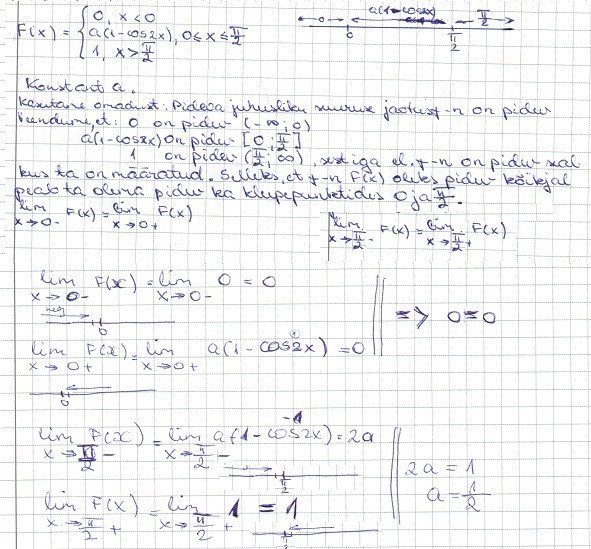 F(x) = { 0, x < 0
a(1-cos2x), 0 ≤ x ≤ π/2
1, x > π/2
0 a(1-cos2x) π/2
0 π/2
Konstant a.
Kasutame omadust: Pideva juhusliku suuruse jaotusf-n on pidev
Veendume, et: 0 on pidev (-∞; 0)
a(1-cos2x) on pidev [0; π/2]
1 on pidev (π/2; ∞), sest iga el. f-n on pidev seal
kus ta on määratud. Selleks, et f-n F(x) oleks pidev kõikjal
peab ta olema pidev ka klepepunktides 0 ja π/2.
lim x→0- F(x) = lim x→0+ F(x)
lim x→π/2- F(x) = lim x→π/2+ F(x)
lim x→0- F(x) = lim x→0- 0 = 0
0
=> 0=0
lim x→0+ F(x) = lim x→0+ a(1-cos2x) = 0
0
-1
lim x→π/2- F(x) = lim x→π/2- a(1-cos2x) = 2a
π/2
2a = 1
a = 1/2
lim x→π/2+ F(x) = lim x→π/2+ 1 = 1
π/2